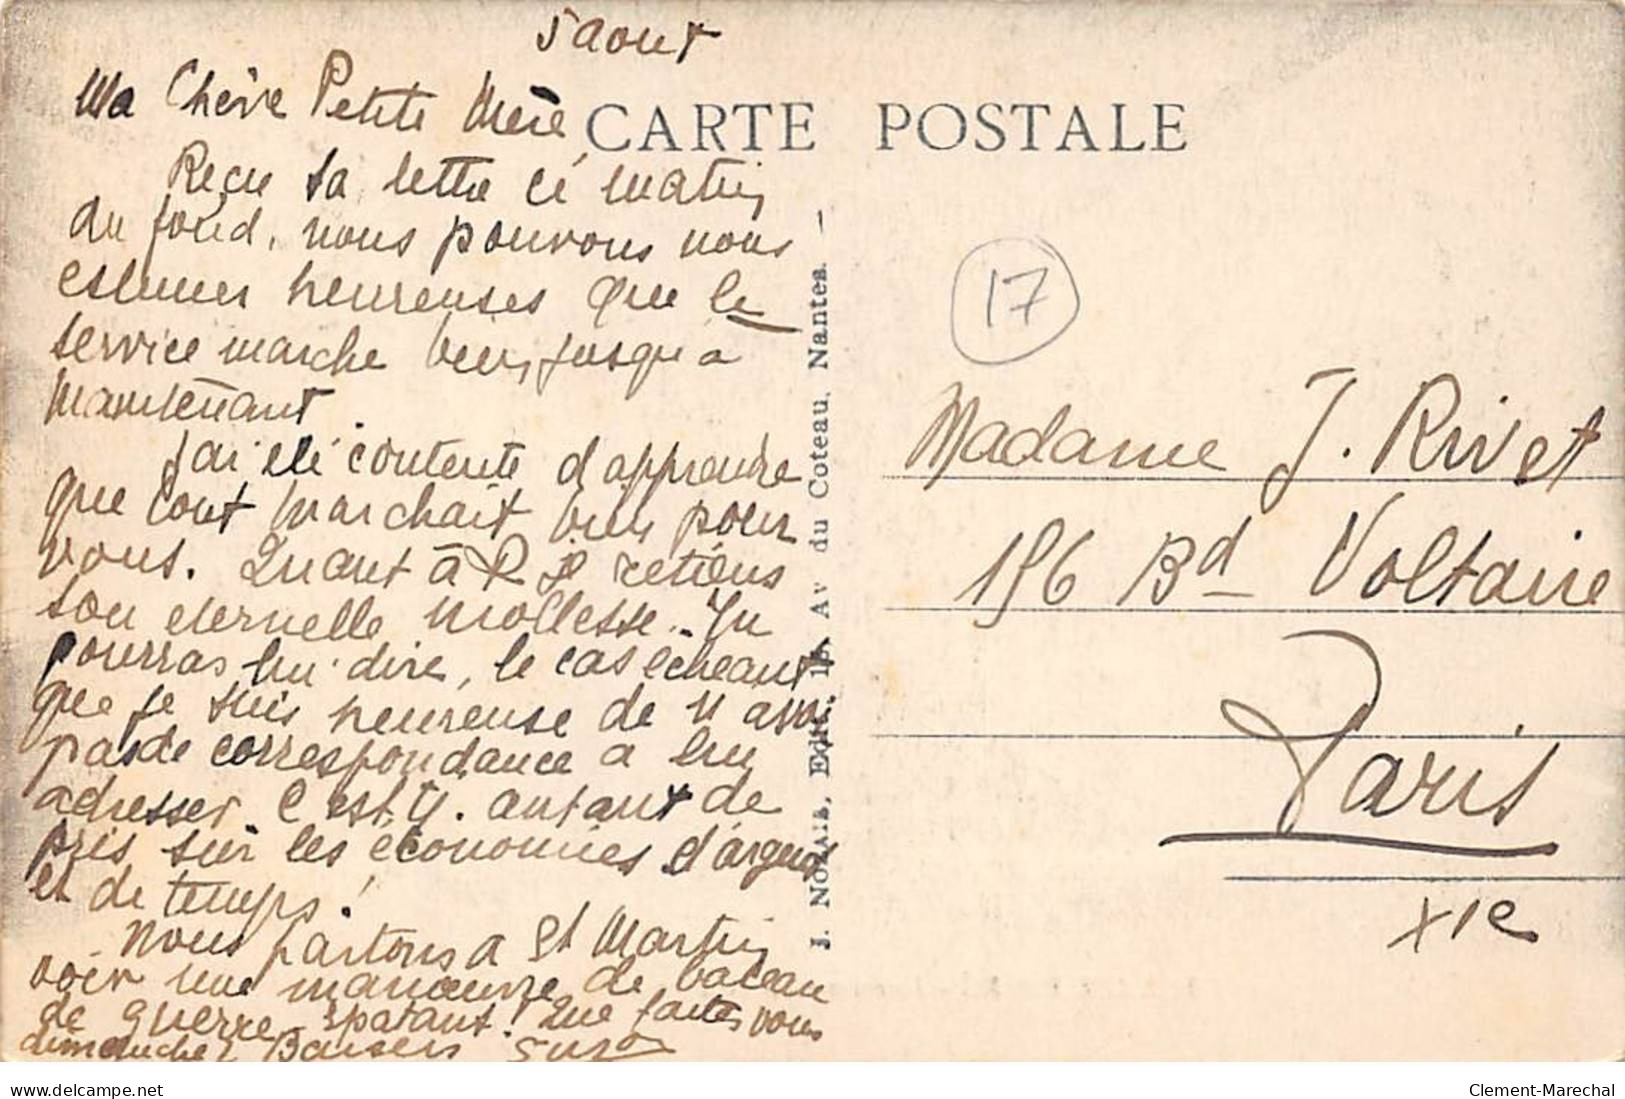 5 aout
Ma Chère Petite Mère,
CARTE POSTALE
Reçu ta lettre ce matin
du fond, nous pouvons nous
estimer heureuses que le
service marche bien jusqu'a
maintenant.
J'ai été contente d'apprendre
que tout marchait bien pour
vous. Quant à R je retiens
son eternelle mollesse. Tu
pourras lui dire, le cas echeant
que je suis heureuse de n'avoir
pas de correspondance a lui
adresser. C'est autant de
pris sur les économies d'argent
et de temps!
Nous partons a St Martin
voir une manœuvre de bateau
de guerre, épatant! Que faites vous
dimanche? Baisers
J. Nozais, Edit. Av. du Coteau, Nantes.
17
Madame J. Rivet
156 Bd Voltaire
Paris
XIe
delcampe.net
Clement-Marechal